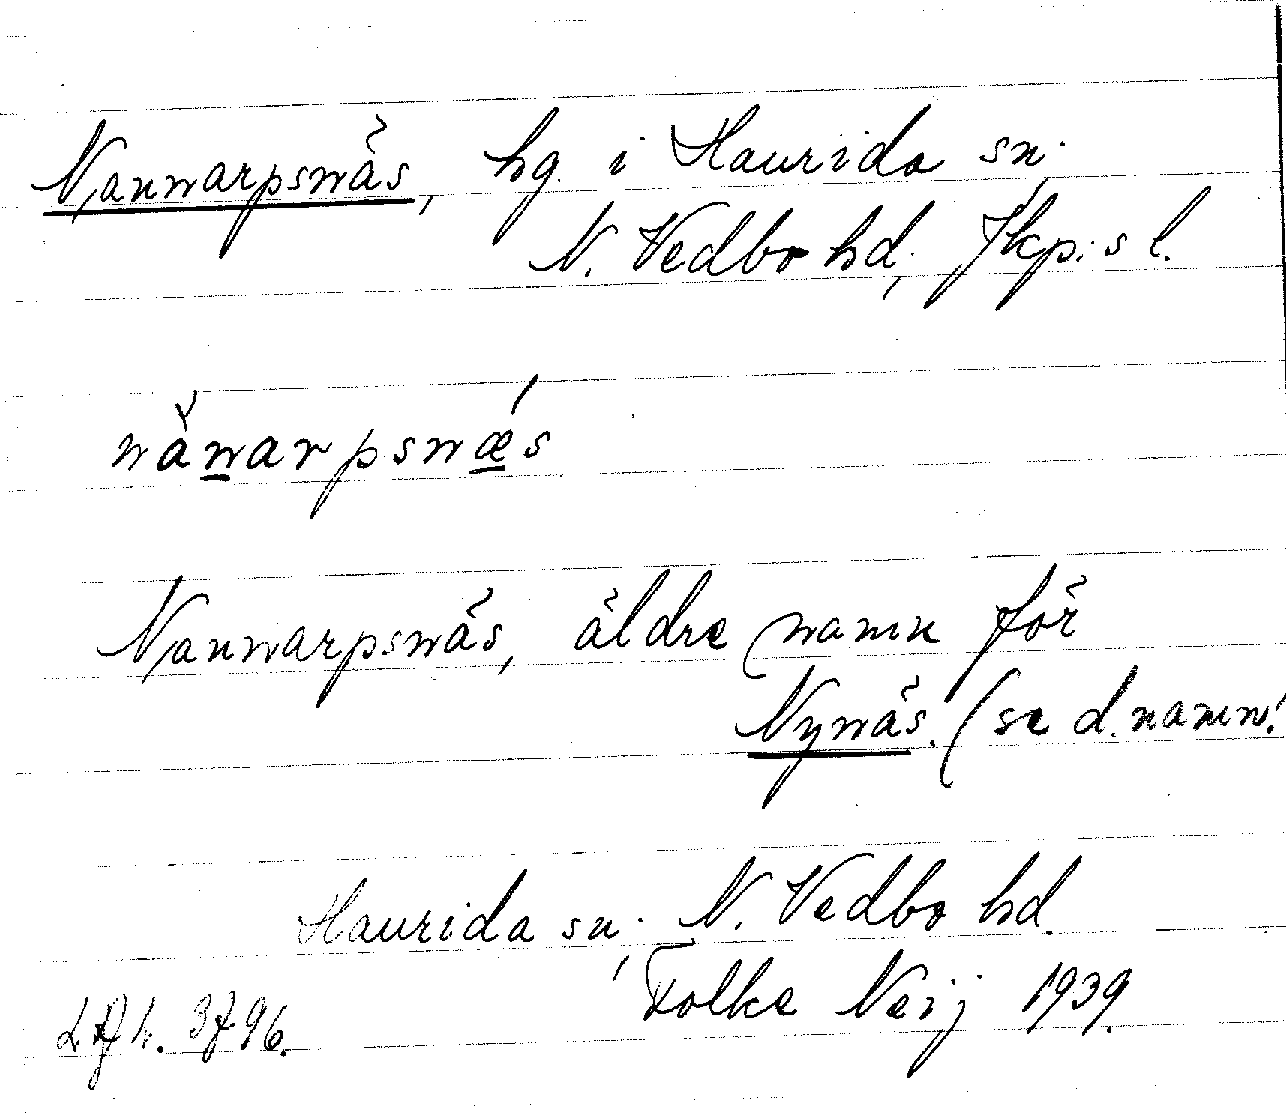 Nannarpsnäs, hg. i Haurida sn.
N. Vedbo hd., Jkp:s l.
nànarpsnǽs
Nannarpsnäs, äldre namn för
Nynäs. (se d. namn!
Haurida sn., N. Vedbo hd.
Folke Neij 1939.